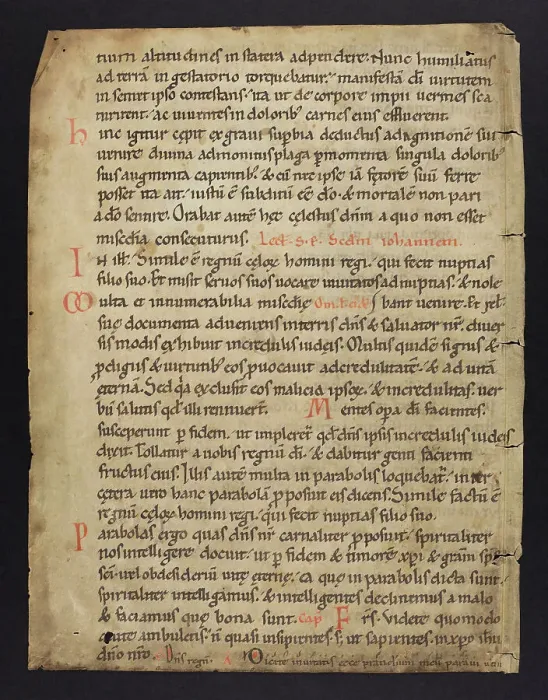 tium altitudines in statera adpendere. Nunc humiliatus
ad terrā in gestatorio torquebatur. manifestā dī virtutem
in semet ipso contestans. ita ut de corpore impii vermes sca
turirent. ac viventes in dolorib; carnes eius effluerent.
hinc igitur cępit ex gravi suꝑbia deductus ad agnitionē sui
venire divina admonitus plaga ꝑ momenta singula dolorib;
suis augmenta capientib; & cū nec ipse iā fętorē suū ferre
posset ita ait. iustū ē subditū eē dō. & mortalē non pari
a dō sentire. Orabat autē hęc cęlestus dn̄m a quo non esset
miscđia consecuturus. Lect. s. e. Scdm iohannem.
IN ill. Simile ē regnū cęloꝝ homini regi. qui fecit nuptias
filio suo. Et misit servos suos vocare invitatos ad nuptias. & nole
Multa et innumerabilia miscđię bant venire. Et rel.
suę documenta adveniens in terris dn̄s & salvator nr̄. diver
sis modis exhibuit incredulis iudeis. Multis quidē signis &
ꝓdigiis & virtutib; eos ꝓvocavit ad credulitatē. & ad vitā
ęternā. Sed q̄a exclusit eos malicia ipsoꝝ. & incredulitas. ver
bū salutis qd̄ illi rennuer̄t. Mentes opa dī facientes.
susceperunt ꝑ fidem. ut impleret̄ qd̄ dn̄s ipsis incredulis iudeis
dixit. Tollatur a nobis regnū dī. & dabitur genti facienti
fructus eius. Illis autē multa in parabolis loquebat̄. inter
cętera vero hanc parabolā ꝓposuit eis dicens. Simile factū ē
regnū cęloꝝ homini regi. qui fecit nuptias filio suo.
Parabolas ergo quas dn̄s nr̄ carnaliter ꝓposuit. spiritaliter
nos intelligere docuit. ut ꝑ fidem & timorē xp̄i & gr̄am sp̄s
sc̄i. vel ob desideriū vitę ęternę. Ea que in parabolis dicta sunt.
spiritaliter intelligamus. & intelligentes declinemus a malo
& faciamus quę bona sunt. cap Fr̄s. Videte quomodo
caute ambuletis. n̄ quasi insipientes. s; ut sapientes. in xp̄o ih̄u
dn̄o nr̄o. Dicite invitatis ecce prandium meū paravi